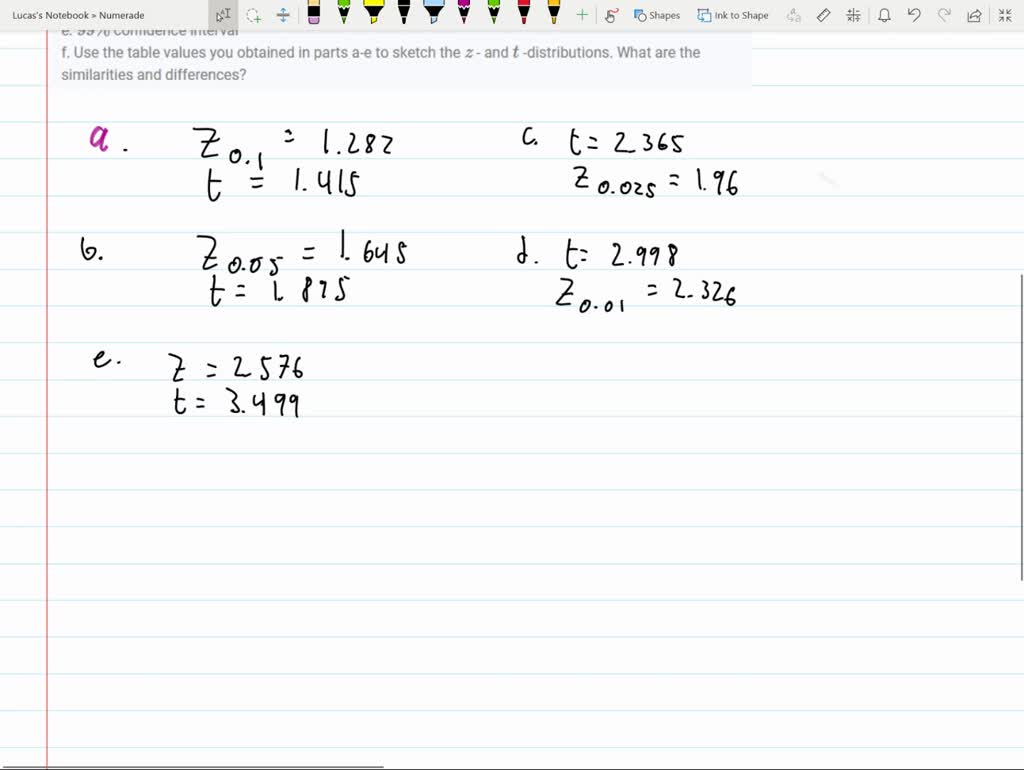 Lucas's Notebook > Numerade
Shapes
Ink to Shape
e. 99% confidence interval
f. Use the table values you obtained in parts a-e to sketch the z - and t -distributions. What are the
similarities and differences?
a. Z0.1 = 1.282
t = 1.415
b. Z0.05 = 1.645
t = 1.895
c. t = 2.365
Z0.025 = 1.96
d. t = 2.998
Z0.01 = 2.326
e. z = 2.576
t = 3.499